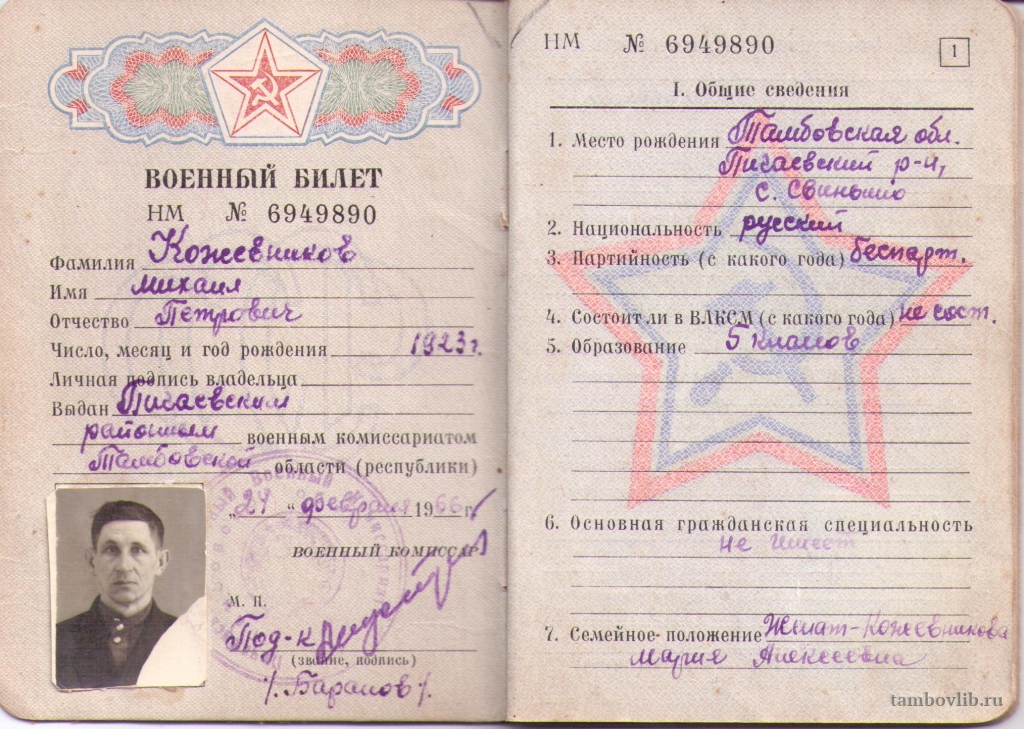 ВОЕННЫЙ БИЛЕТ
НМ № 6949890
Фамилия Кожевников
Имя Михаил
Отчество Петрович
Число, месяц и год рождения 1923 г.
Личная подпись владельца
Выдан Пичаевским
районным военным комиссариатом
Тамбовской области (республики)
„24“ февраля 1966 г.
ВОЕННЫЙ КОМИССАР
М. П.
Под-к
(звание, подпись)
/. Баранов /.
НМ № 6949890
1
I. Общие сведения
1. Место рождения Тамбовская обл.
Пичаевский р-н,
с. Свиньино
2. Национальность русский
3. Партийность (с какого года) беспарт.
4. Состоит ли в ВЛКСМ (с какого года) не сост.
5. Образование 5 классов
6. Основная гражданская специальность
не имеет
7. Семейное положение Женат-Кожевникова
Мария Алексеевна
tambovlib.ru